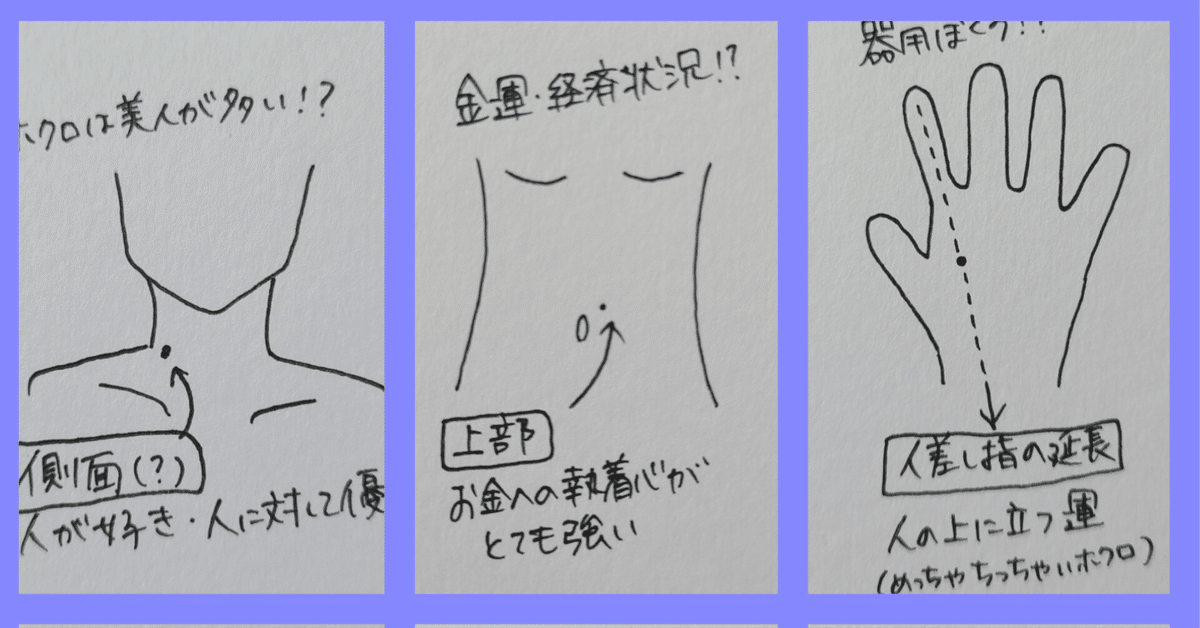 ホクロは美人が多い!?
側面(?)
人が好き・人に対して優
金運・経済状況!?
上部
お金への執着心が
とても強い
器用ぼくろ!?
人差し指の延長
人の上に立つ運
(めっちゃちっちゃいホクロ)